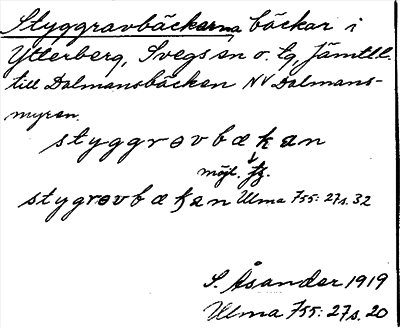 Styggravbäckarna bäckar i
Ytterberg, Svegs sn o. tg, Jämtl.l.
till Dalmansbäcken NV Dalmans-
myren.
styggrøvbækan
möjl. ꞗ.
stygrøvbæꞗan Ulma 755: 27 s. 32
S. Åsander 1919
Ulma 755: 27 s. 20